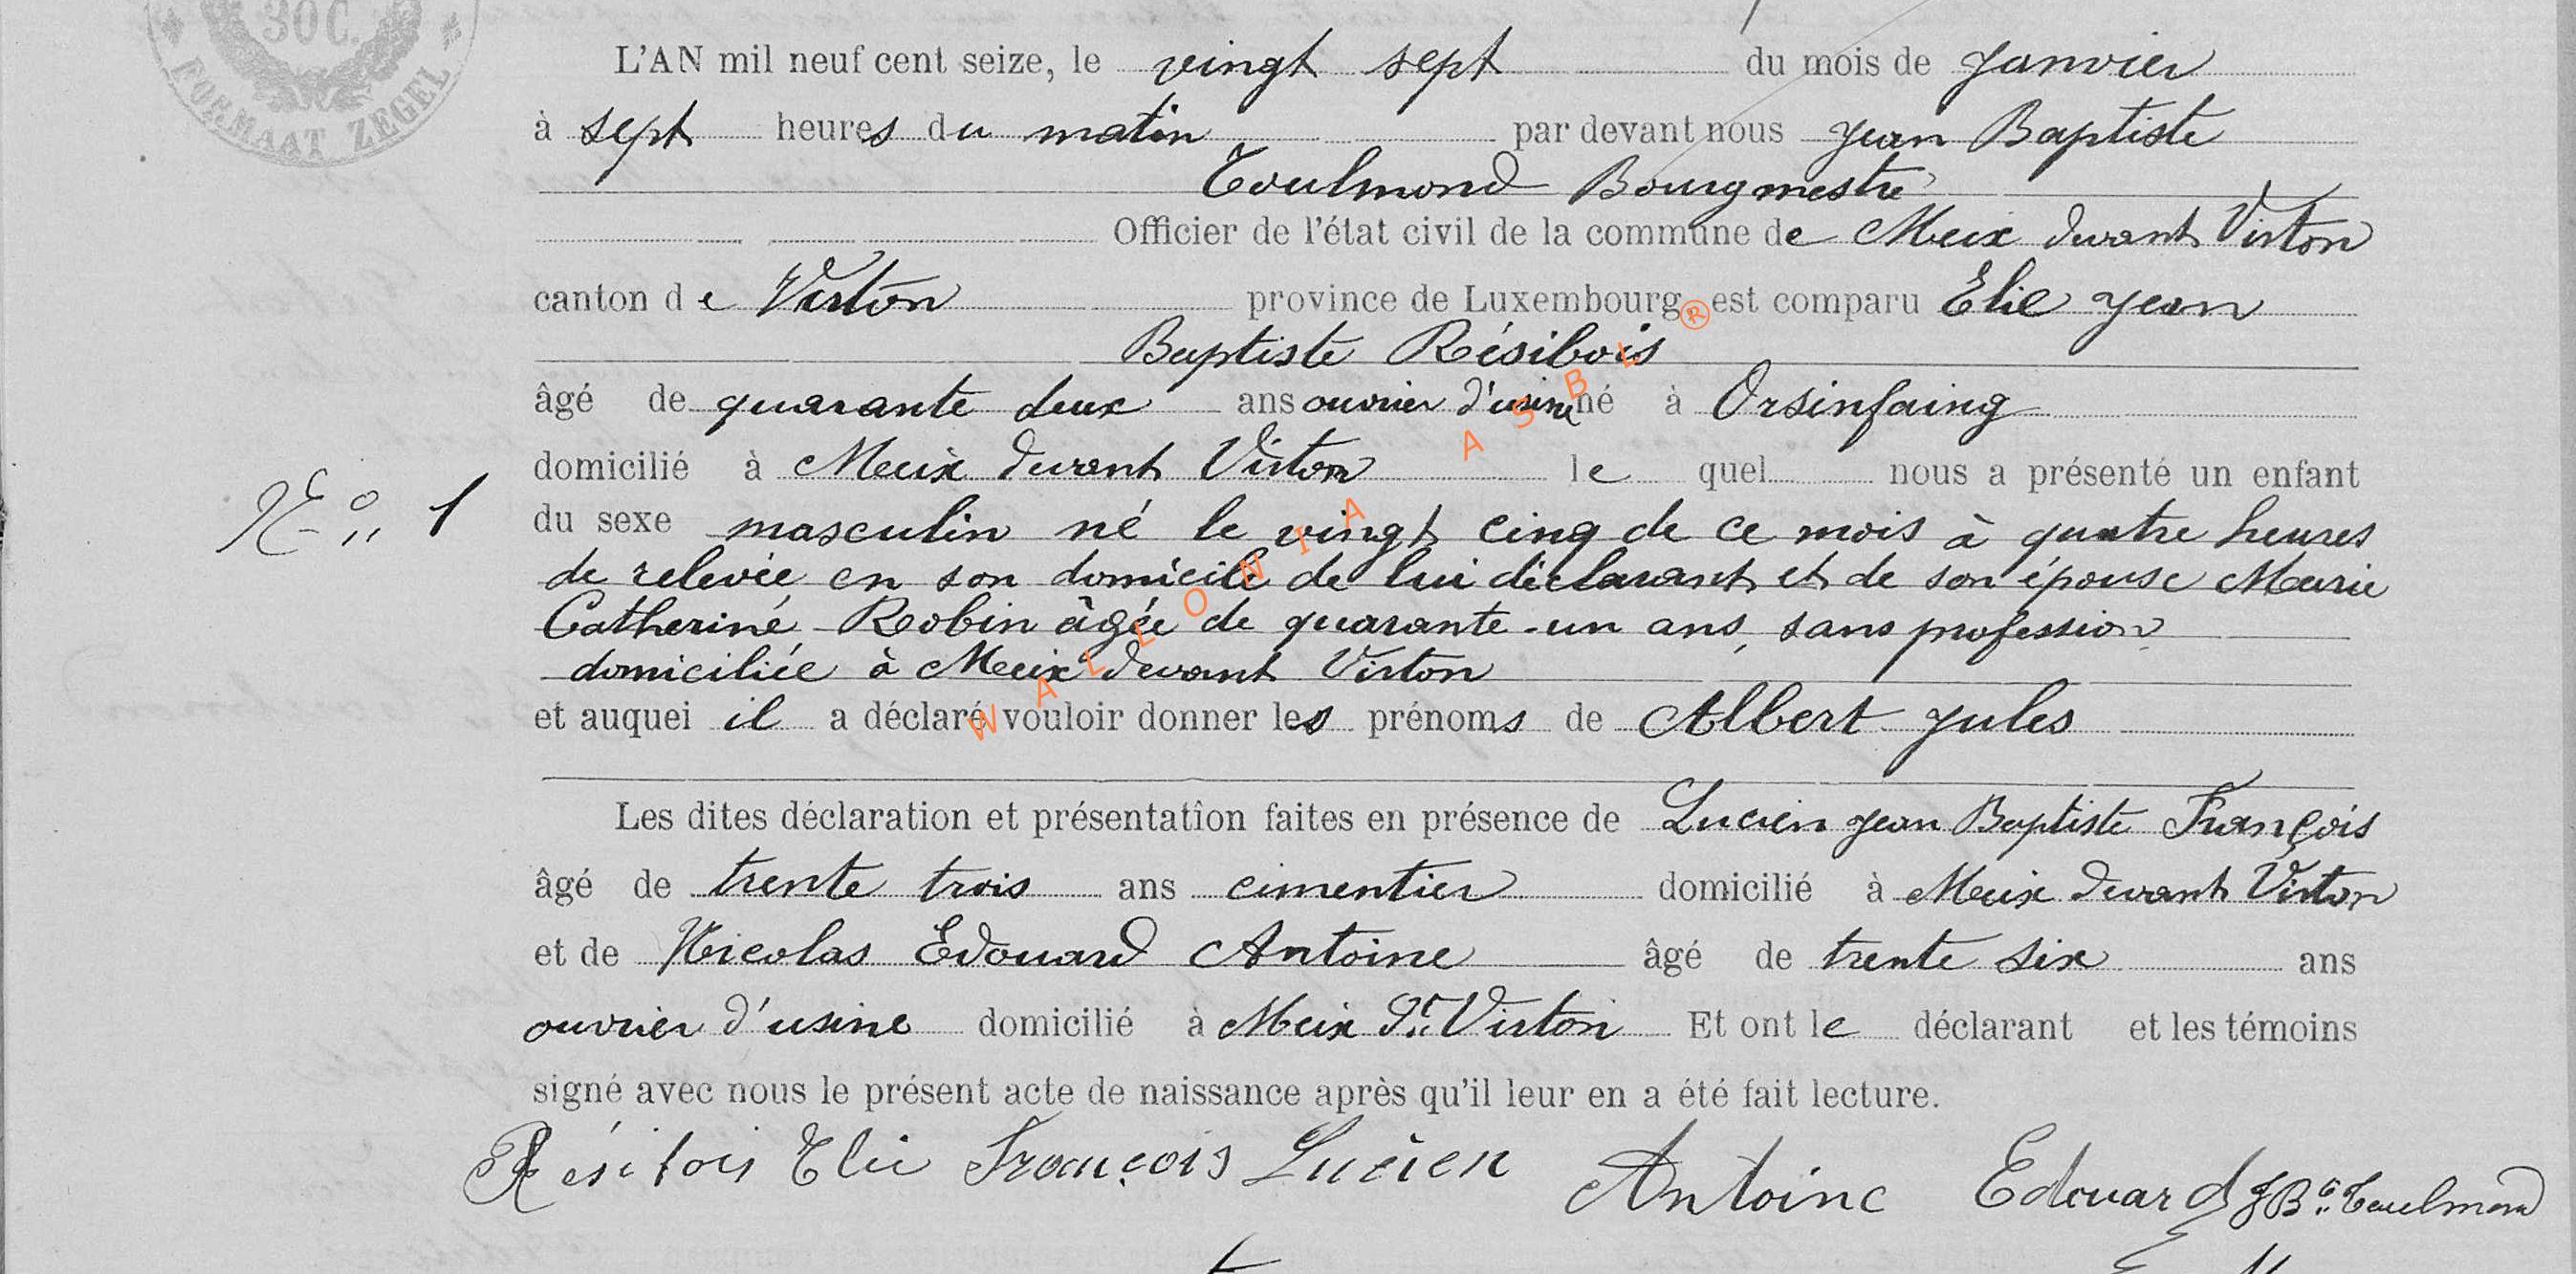 30 C.
FORMAAT ZEGEL
L'AN mil neuf cent seize, le vingt sept du mois de Janvier
à sept heures du matin par devant nous Jean Baptiste
Toulmond Bourgmestre
Officier de l'état civil de la commune de Meix devant Virton
canton de Virton province de Luxembourg est comparu Elie Jean
Baptiste Résibois
âgé de quarante deux ans ouvrier d'usine né à Orsinfaing
domicilié à Meix devant Virton le quel nous a présenté un enfant
N° 1
du sexe masculin né le vingt cinq de ce mois à quatre heures
de relevée en son domicile de lui déclarant et de son épouse Marie
Catherine Robin âgée de quarante-un ans, sans profession
domiciliée à Meix devant Virton
et auquel il a déclaré vouloir donner les prénoms de Albert Jules
Les dites déclaration et présentation faites en présence de Lucien Jean Baptiste François
âgé de trente trois ans cimentier domicilié à Meix devant Virton
et de Nicolas Edouard Antoine âgé de trente six ans
ouvrier d'usine domicilié à Meix dt Virton Et ont le déclarant et les témoins
signé avec nous le présent acte de naissance après qu'il leur en a été fait lecture.
Résibois Elie François Lucien Antoine Edouard J Bte Toulmond
WALLONIA ASBL ®